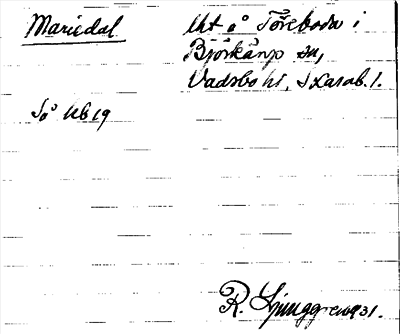 Mariedal
Uht å Töreboda i
Björkängs sn,
Vadsbo hd, Skarab. l.
Så Kb 19
R. Ljunggren 1931.